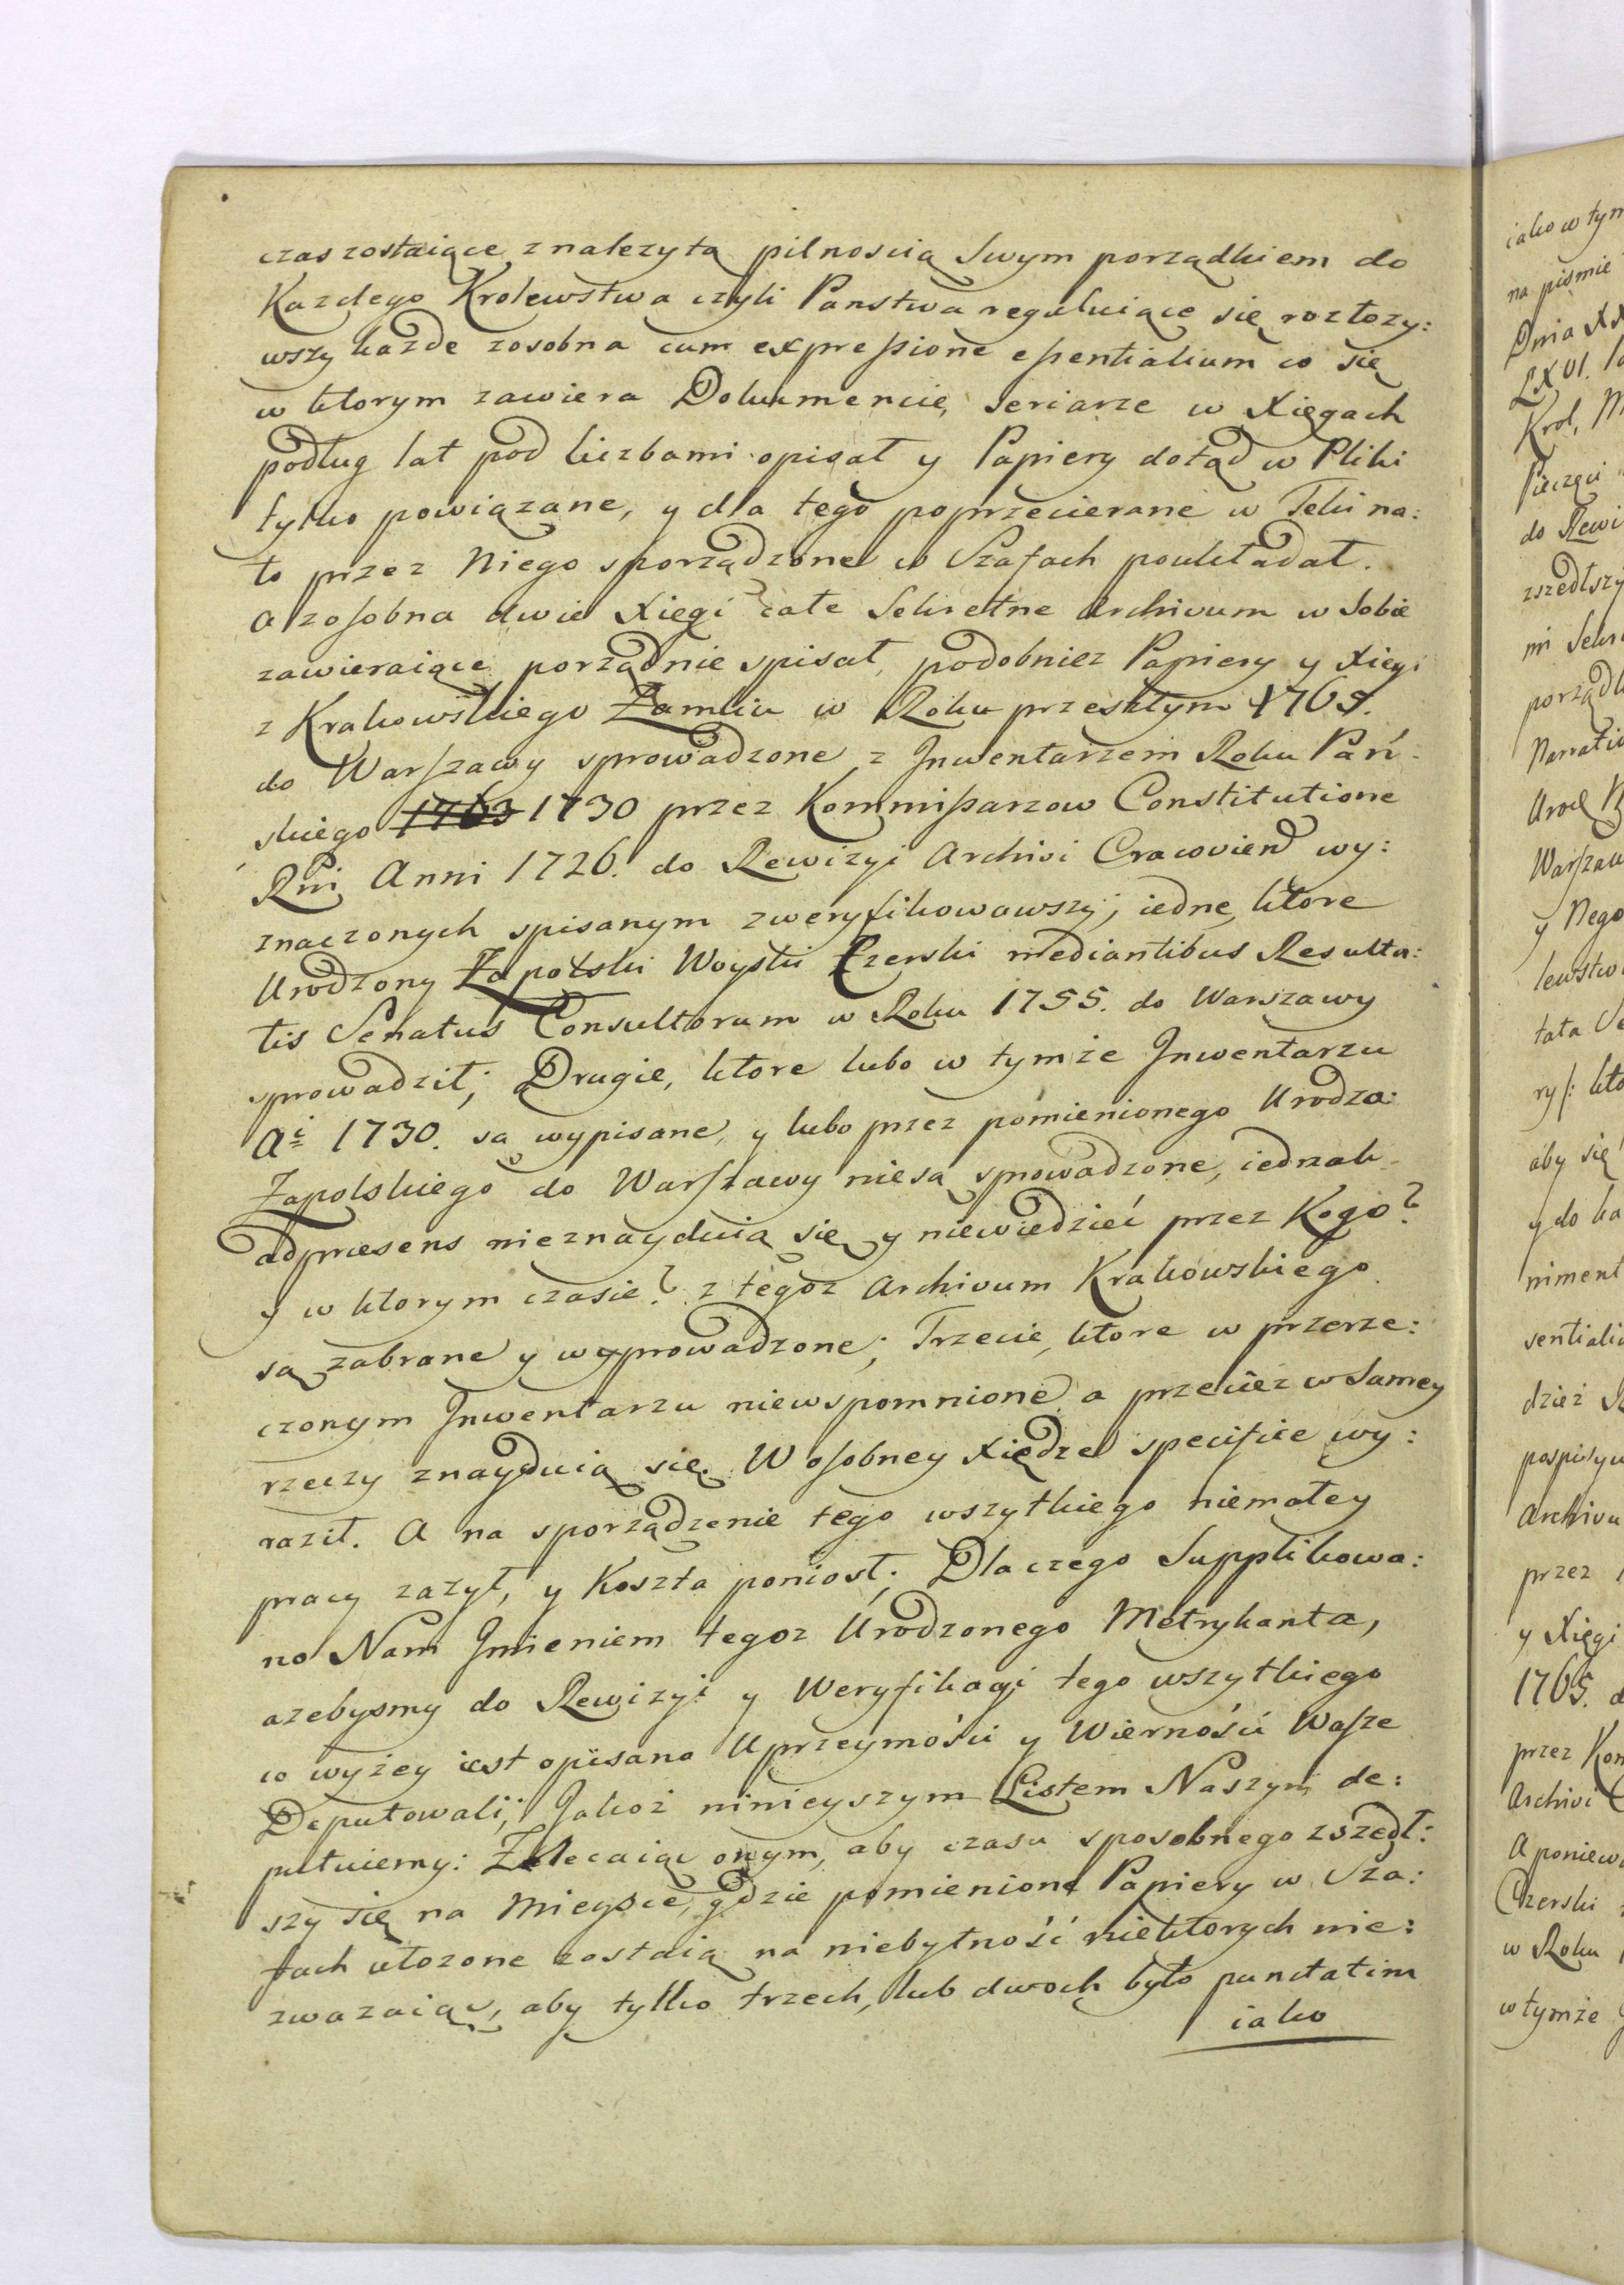 czas zostaiące z nalezytą pilnoscią swym porządkiem do
Kazdego Krolewstwa czyli Panstwa reguluiące się rozłozy:
wszy kazde zosobna cum expreſsione eſsentialium co się
w ktorym zawiera Dokumencie, seriarze w Xięgach
podług lat pod liczbami opisał y Papiery dotąd w Pliki
tylko powiązane, y dla tego poprzecierane w Teki na:
to przez Niego sporządzone w Szafach poukładał.
a zoſobna dwie Xięgi całe Sekretne Archivum w sobie
zawieraiące porządnie spisał, podobniez Papiery y Xięgi
z Krakowskiego Zamku w Roku przeszłym 1765.
do Warſzawy sprowadzone z Jnwentarzem Roku Pań:
skiego 1763 1730 przez Kommiſsarzow Constitutione
Rni Anni 1726. do Rewizyi Archivi Cracovien wy:
znaczonych spisanym zweryfikowawszy; iedne, ktore
Urodzony Zapolski Woyski Czerski mediantibus Resulta:
tis Senatus Consultorum w Roku 1755. do Warszawy
sprowadził; Drugie, ktore lubo w tymże Jnwentarzu
Ai 1730. są wypisane, y lubo przez pomienionego Urodzo:
Zapolskiego do Warſzawy niesą sprowadzone, iednak
adpraesens nieznayduią się y niewiedzieć przez Kogo?
y w ktorym czasie? z tegoz Archivum Krakowskiego
są zabrane y wyprowadzone; Trzecie, ktore w przerze:
czonym Jnwentarzu niewspomnione a przeciez w samey
rzeczy znayduią się. W oſobney Xiędze specifice wy:
raził. A na sporządzenie tego wszytkiego niemałey
pracy zazył, y Koszta poniosł; Dlaczego Supplikowa:
no Nam Jmieniem tegoz Urodzonego Metrykanta,
azebysmy do Rewizyi y Weryfikacyi tego wszytkiego
co wyżey iest opisano Uprzeymości y Wierności Waſze
Deputowali; Jakoż ninieyszym Listem Naszym de:
putuiemy: Zalecaiąc onym, aby czasu sposobnego zszedł:
szy się na Mieysce, gdzie pomienione Papiery w Sza:
fach ułozone zostaią na niebytność niektorych nie:
zwazaiąc, aby tylko trzech, lub dwoch było punctatim
iako
iako w tym
na pismie
Dnia XX
LXVI.
Krol, M
Pieczęci
do Rewi
zszedłszy
mi Sekre
porządk
Narratio
Urod
Warſzaw
y Nego
lewstwa
tata Se
ry/: kto
aby się
y do ka
niment
sentialiu
dzież
pospisyw
Archivu
przez
y Xięgi
1765. d
przez Kom
Archivi C
A poniewa
Czerski
w Roku
w tymże